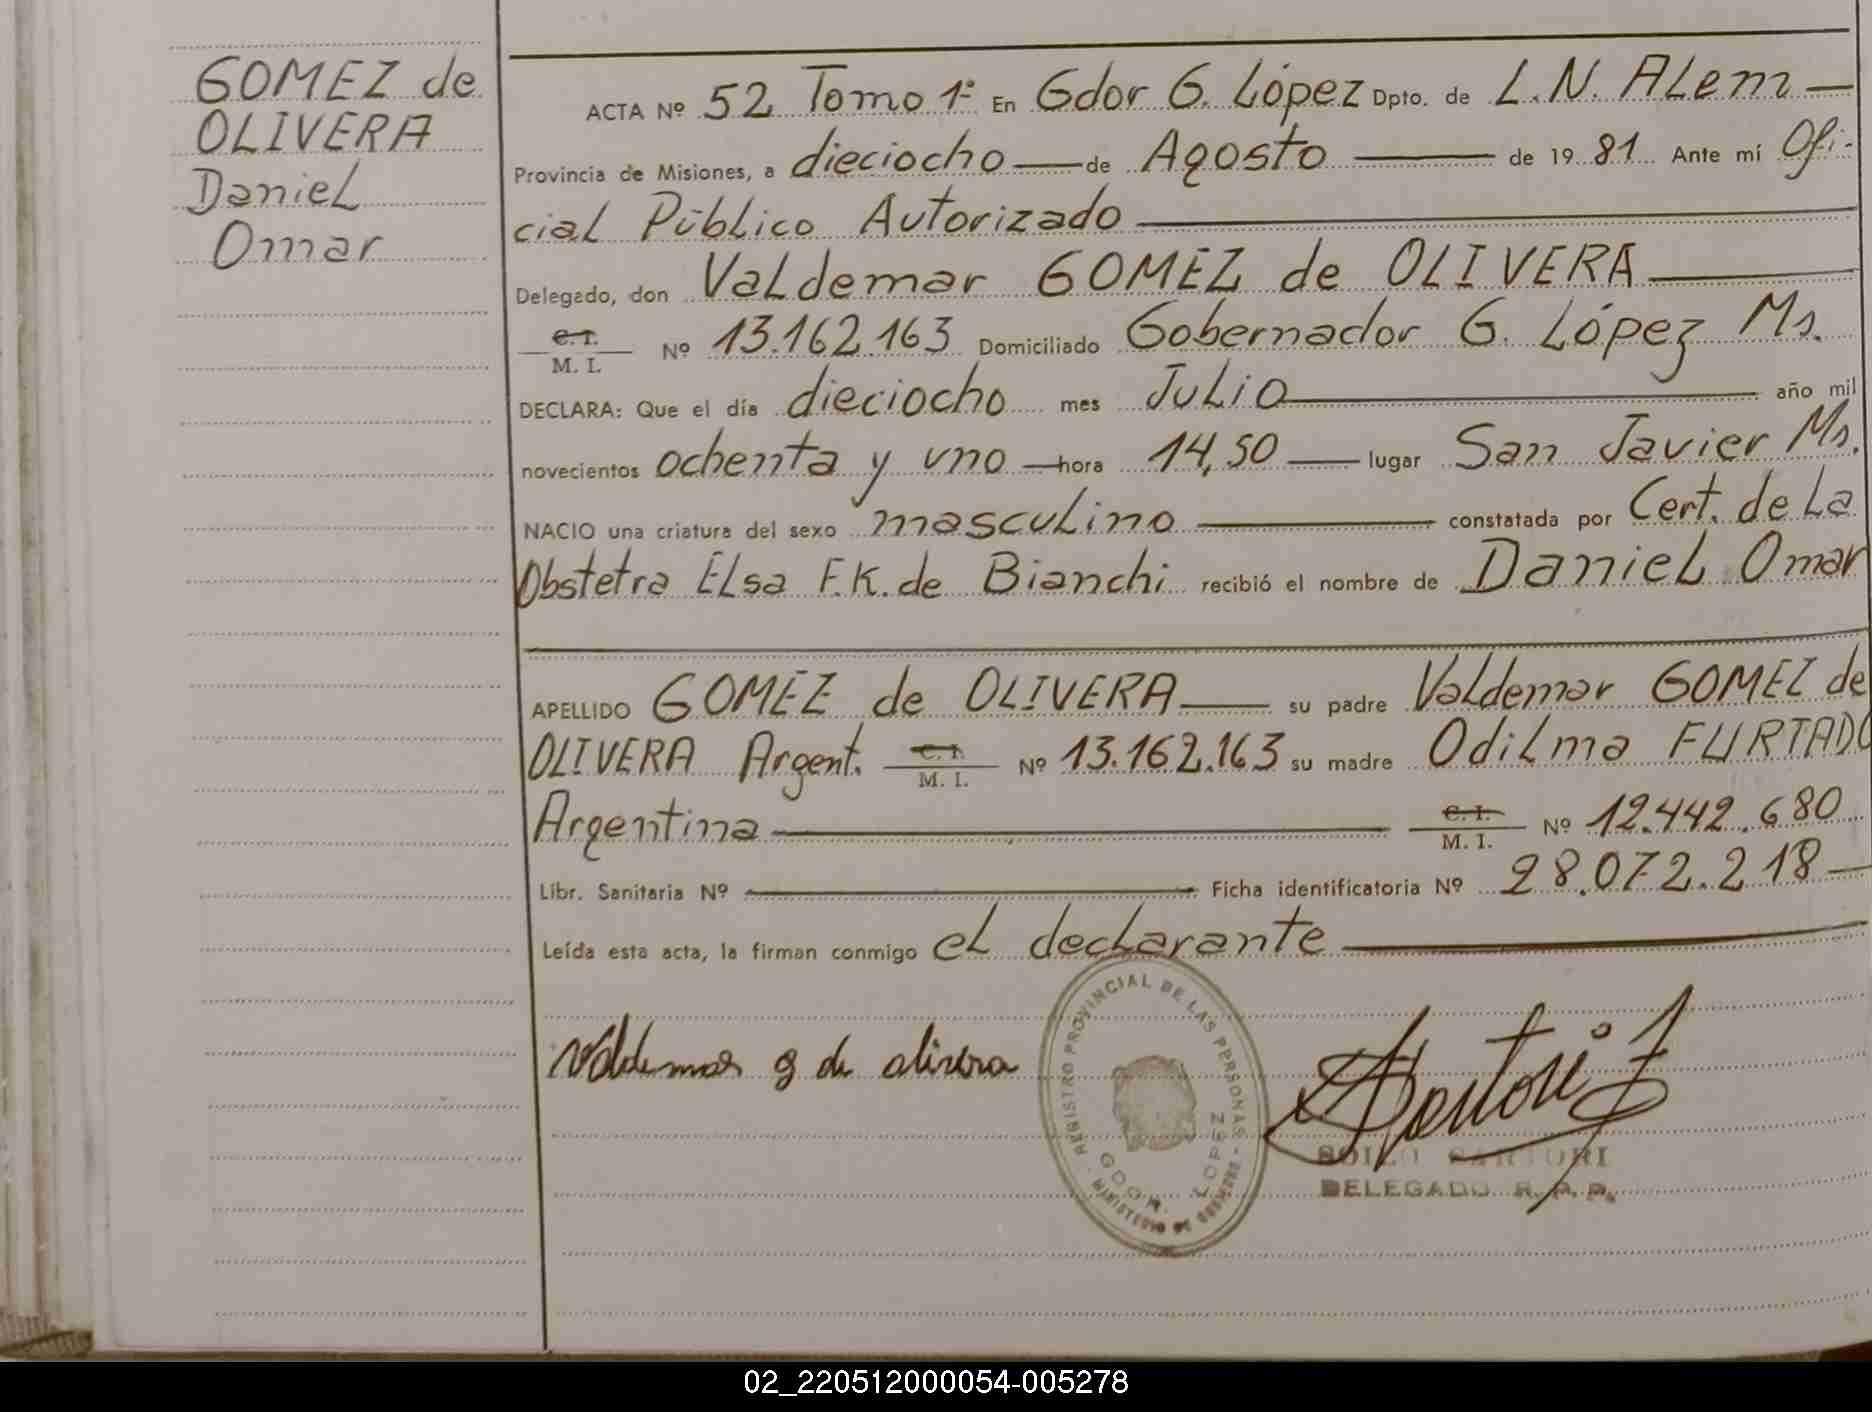 GOMEZ de
OLIVERA
Daniel
Omar
ACTA Nº 52 Tomo 1º En Gdor G. López Dpto. de L.N. ALem
Provincia de Misiones, a dieciocho de Agosto de 19 81 Ante mí Ofi-
cial Público Autorizado
Delegado, don Valdemar GOMEZ de OLIVERA
C. I.
M. I. Nº 13.162.163 Domiciliado Gobernador G. López Ms.
DECLARA: Que el día dieciocho mes Julio año mil
novecientos ochenta y uno hora 14,50 lugar San Javier Ms.
NACIO una criatura del sexo masculino constatada por Cert. de La
Obstetra Elsa F.K. de Bianchi recibió el nombre de Daniel Omar
APELLIDO GOMEZ de OLIVERA su padre Valdemar GOMEZ de
OLIVERA Argent. C. I. M. I. Nº 13.162.163 su madre Odilma FURTADO
Argentina C. I. M. I. Nº 12.442.680
Libr. Sanitaria Nº Ficha identificatoria Nº 28.072.218
Leída esta acta, la firman conmigo el declarante
Valdemar g de olivera
REGISTRO PROVINCIAL DE LAS PERSONAS - MINISTERIO DE GOBIERNO
GDOR. LOPEZ
Sartori
SOILO SARTORI
DELEGADO R. P. P.
02_220512000054-005278